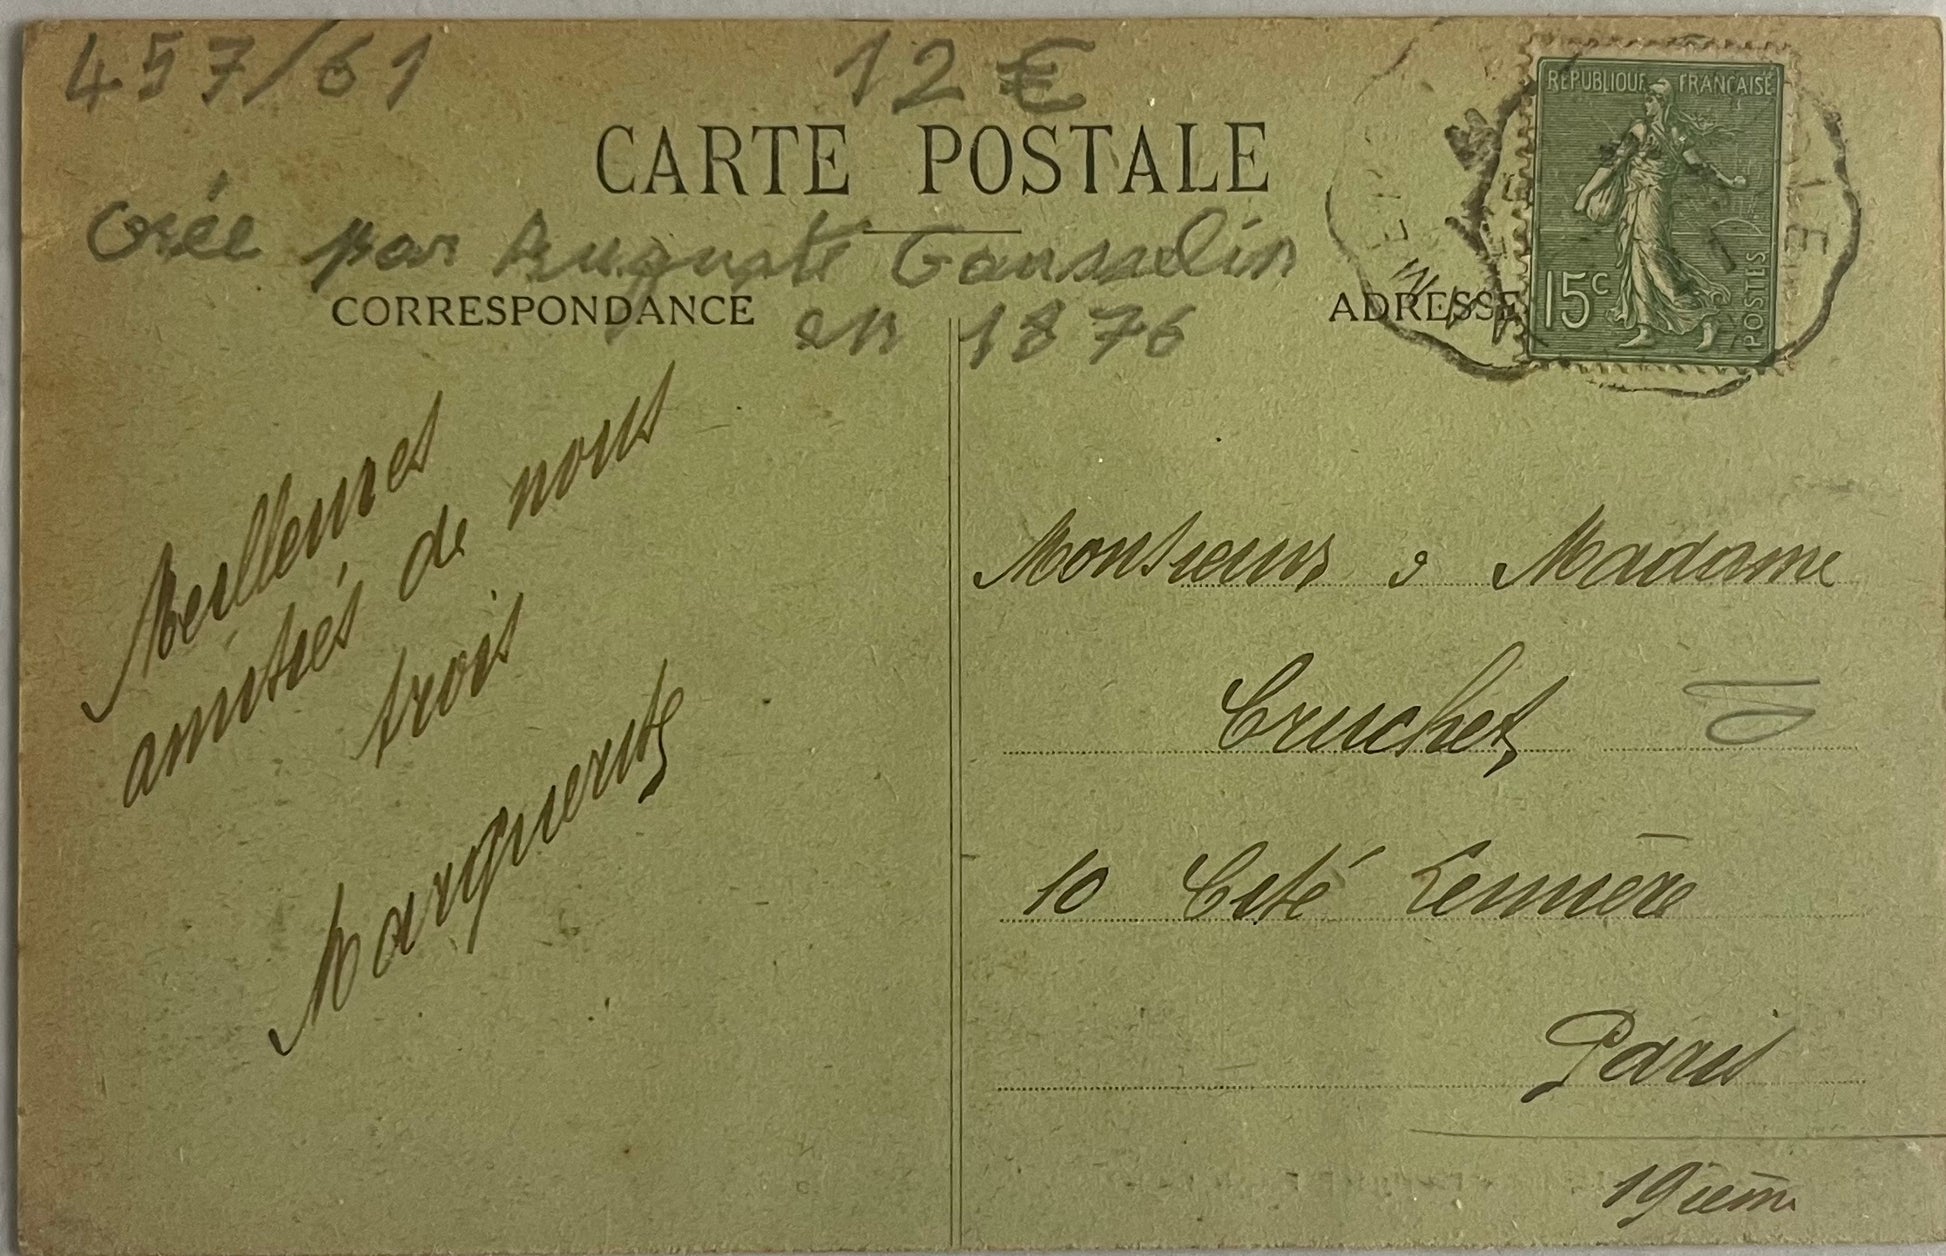 457/61 12 €
CARTE POSTALE
Crée par Auguste Gousselin
en 1876
CORRESPONDANCE
ADRESSE
RÉPUBLIQUE FRANÇAISE
15c
POSTES
Meilleures
amitiés de nous
trois
Marguerite
Monsieur & Madame
Cruchet
10 Cité Lemière
Paris
19ième